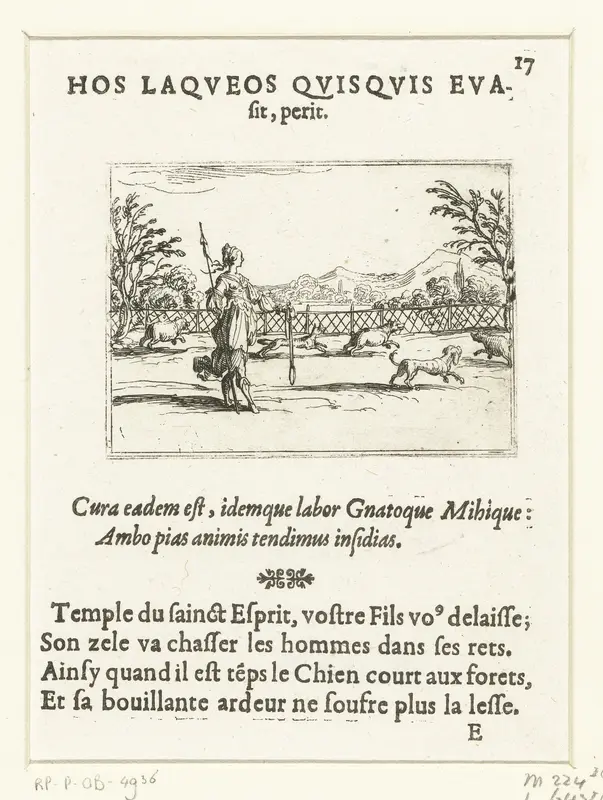 17
HOS LAQVEOS QVISQVIS EVA-
ſit, perit.
Cura eadem eſt, idemque labor Gnatoque Mihique:
Ambo pias animis tendimus inſidias.
Temple du ſainct Eſprit, voſtre Fils vo⁹ delaiſſe;
Son zele va chaſſer les hommes dans ſes rets.
Ainſy quand il eſt tẽps le Chien court aux forets,
Et ſa bouillante ardeur ne ſoufre plus la leſſe.
E
RP-P-OB-4936
M 224